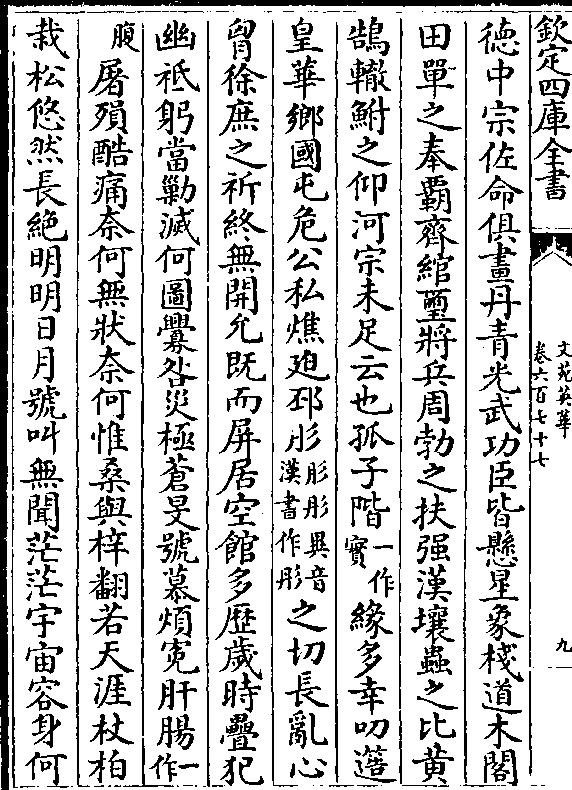 欽定四庫全書
文苑英華
卷六百七十七
九
徳中宗佐命俱畫丹青光武功臣皆懸星象棧道木閣
田單之奉覇齊綰璽將兵周勃之扶强漢壤蟲之比黄
鵠轍鮒之仰河宗未足云也孤子階一作實緣多幸叨簉
皇華鄉國屯危公私燋廹邳彤彤彤異音漢書作彤之切長亂心
胷徐庶之祈終無開允既而屏居空館多歴歳時疊犯
幽祇躬當勦滅何圖釁咎災極蒼旻號慕煩寃肝腸一作
腹屠殞酷痛奈何無狀奈何惟桑與梓翻若天涯杖柏
栽松悠然長絶明明日月號叫無聞茫茫宇宙容身何